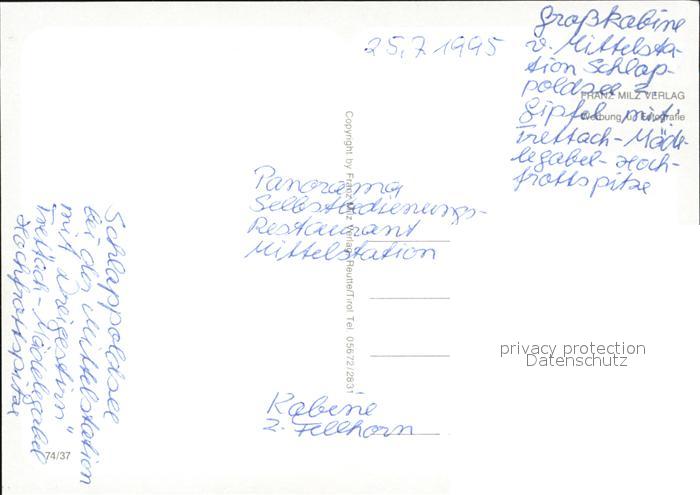 25.7.1995
Großkabine
v. Mittelsta-
tion Schlap-
poldsee z.
Gipfel mit
Trettach-Mäde-
legabel-Hoch-
frottspitze
FRANZ MILZ VERLAG
Werbung u. Fotografie
Copyright by Franz Milz Verlag Reutte/Tirol Tel. 05672/2831
Panorama
Selbstbedienungs-
Restaurant
Mittelstation
Schlappoldsee
bei der Mittelstation
mit "Dreigestirn"
Trettach-Mädelegabel
Hochfrottspitze
Kabine
z. Fellhorn
74/37
privacy protection
Datenschutz